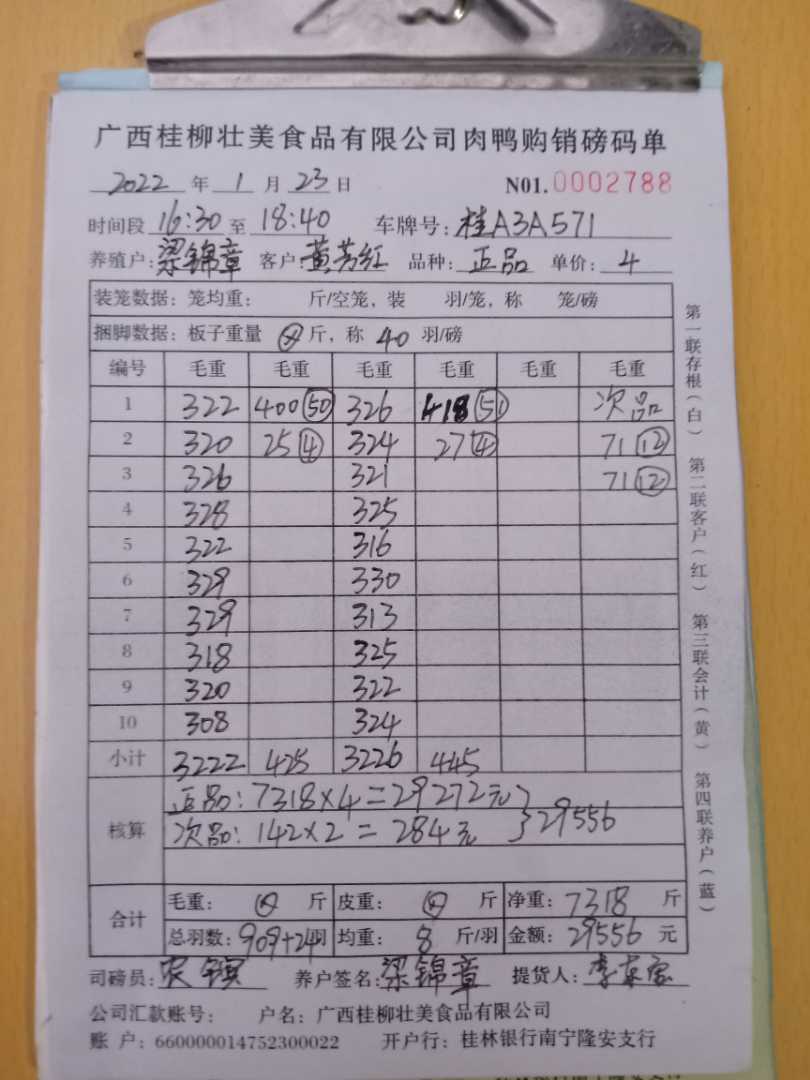 广西桂柳壮美食品有限公司肉鸭购销磅码单
2022 年 1 月 23 日 N01. 0002788
时间段 16:30 至 18:40 车牌号: 桂A3A571
养殖户: 梁锦章 客户: 黄芳红 品种: 正品 单价: 4
装笼数据: 笼均重: 斤/空笼, 装 羽/笼, 称 笼/磅
捆脚数据: 板子重量 斤, 称 40 羽/磅
编号 毛重 毛重 毛重 毛重 毛重 毛重
1 322 400(50) 326 418(51) 次品
2 320 25(4) 324 27(4) 71(12)
3 326 321 71(12)
4 328 325
5 322 316
6 329 330
7 329 313
8 318 325
9 320 322
10 308 324
小计 3222 425 3226 445
核算 正品: 7318×4=29272元 } 29556
次品: 142×2=284元
合计 毛重: 斤 皮重: 斤 净重: 7318 斤
总羽数: 909+24羽 均重: 8 斤/羽 金额: 29556 元
司磅员: 养户签名: 梁锦章 提货人:
公司汇款账号: 户名: 广西桂柳壮美食品有限公司
账 户: 660000014752300022 开户行: 桂林银行南宁隆安支行
第一联存根(白) 第二联客户(红) 第三联会计(黄) 第四联养户(蓝)